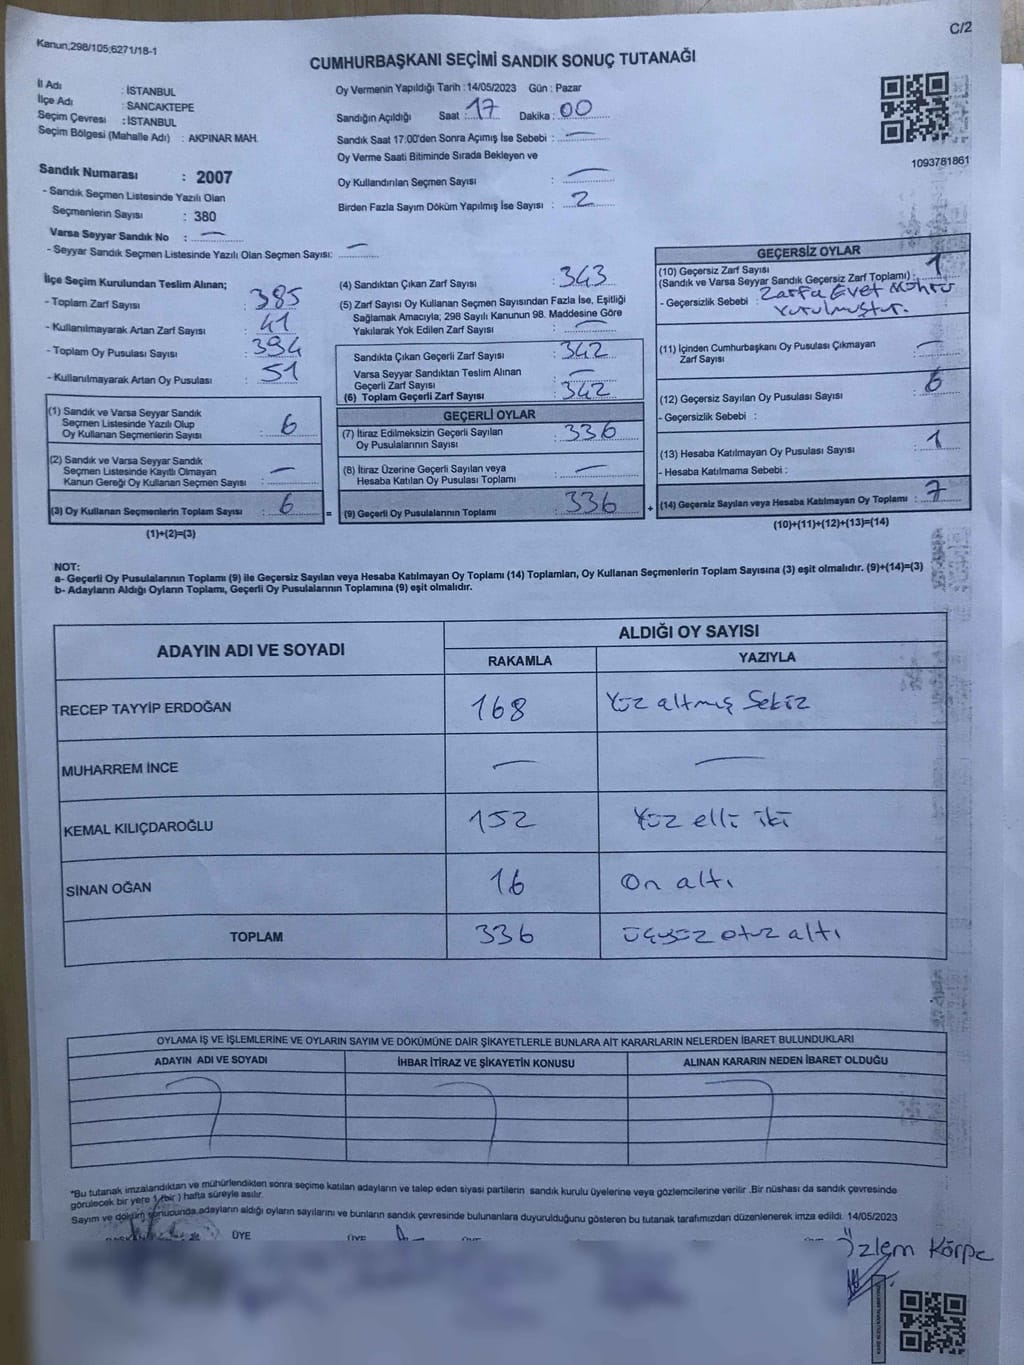 C/2
Kanun;298/105;6271/18-1
CUMHURBAŞKANI SEÇİMİ SANDIK SONUÇ TUTANAĞI
İl Adı : İSTANBUL
İlçe Adı : SANCAKTEPE
Seçim Çevresi : İSTANBUL
Seçim Bölgesi (Mahalle Adı) : AKPINAR MAH.
Sandık Numarası : 2007
- Sandık Seçmen Listesinde Yazılı Olan
Seçmenlerin Sayısı : 380
Varsa Seyyar Sandık No : —
- Seyyar Sandık Seçmen Listesinde Yazılı Olan Seçmen Sayısı: —
Oy Vermenin Yapıldığı Tarih :14/05/2023 Gün : Pazar
Sandığın Açıldığı Saat : 17 Dakika : 00
Sandık Saat 17:00'den Sonra Açımış İse Sebebi : —
Oy Verme Saati Bitiminde Sırada Bekleyen ve
Oy Kullandırılan Seçmen Sayısı : —
Birden Fazla Sayım Döküm Yapılmış İse Sayısı : 2
1093781861
İlçe Seçim Kurulundan Teslim Alınan;
- Toplam Zarf Sayısı : 385
- Kullanılmayarak Artan Zarf Sayısı : 41
- Toplam Oy Pusulası Sayısı : 394
- Kullanılmayarak Artan Oy Pusulası : 51
(1) Sandık ve Varsa Seyyar Sandık
Seçmen Listesinde Yazılı Olup
Oy Kullanan Seçmenlerin Sayısı : 6
(2) Sandık ve Varsa Seyyar Sandık
Seçmen Listesinde Kayıtlı Olmayan
Kanun Gereği Oy Kullanan Seçmen Sayısı : —
(3) Oy Kullanan Seçmenlerin Toplam Sayısı : 6
(1)+(2)=(3)
=
(4) Sandıktan Çıkan Zarf Sayısı : 343
(5) Zarf Sayısı Oy Kullanan Seçmen Sayısından Fazla İse, Eşitliği
Sağlamak Amacıyla; 298 Sayılı Kanunun 98. Maddesine Göre
Yakılarak Yok Edilen Zarf Sayısı : —
Sandıkta Çıkan Geçerli Zarf Sayısı : 342
Varsa Seyyar Sandıktan Teslim Alınan
Geçerli Zarf Sayısı : —
(6) Toplam Geçerli Zarf Sayısı : 342
GEÇERLİ OYLAR
(7) İtiraz Edilmeksizin Geçerli Sayılan
Oy Pusulalarının Sayısı : 336
(8) İtiraz Üzerine Geçerli Sayılan veya
Hesaba Katılan Oy Pusulası Toplamı : —
(9) Geçerli Oy Pusulalarının Toplamı : 336
+
GEÇERSİZ OYLAR
(10) Geçersiz Zarf Sayısı
(Sandık ve Varsa Seyyar Sandık Geçersiz Zarf Toplamı) : 1
- Geçersizlik Sebebi : Zarfa Evet Mührü
Vurulmuştur.
(11) İçinden Cumhurbaşkanı Oy Pusulası Çıkmayan
Zarf Sayısı : —
(12) Geçersiz Sayılan Oy Pusulası Sayısı : 6
- Geçersizlik Sebebi :
(13) Hesaba Katılmayan Oy Pusulası Sayısı : 1
- Hesaba Katılmama Sebebi :
(14) Geçersiz Sayılan veya Hesaba Katılmayan Oy Toplamı : 7
(10)+(11)+(12)+(13)=(14)
NOT:
a- Geçerli Oy Pusulalarının Toplamı (9) ile Geçersiz Sayılan veya Hesaba Katılmayan Oy Toplamı (14) Toplamları, Oy Kullanan Seçmenlerin Toplam Sayısına (3) eşit olmalıdır. (9)+(14)=(3)
b- Adayların Aldığı Oyların Toplamı, Geçerli Oy Pusulalarının Toplamına (9) eşit olmalıdır.
ADAYIN ADI VE SOYADI ALDIĞI OY SAYISI
RAKAMLA YAZIYLA
RECEP TAYYİP ERDOĞAN 168 Yüz altmış Sekiz
MUHARREM İNCE — —
KEMAL KILIÇDAROĞLU 152 Yüz elli iki
SİNAN OĞAN 16 On altı
TOPLAM 336 üçyüz otuz altı
OYLAMA İŞ VE İŞLEMLERİNE VE OYLARIN SAYIM VE DÖKÜMÜNE DAİR ŞİKAYETLERLE BUNLARA AİT KARARLARIN NELERDEN İBARET BULUNDUKLARI
ADAYIN ADI VE SOYADI İHBAR İTİRAZ VE ŞİKAYETİN KONUSU ALINAN KARARIN NEDEN İBARET OLDUĞU
*Bu tutanak imzalandıktan ve mühürlendikten sonra seçime katılan adayların ve talep eden siyasi partilerin sandık kurulu üyelerine veya gözlemcilerine verilir .Bir nüshası da sandık çevresinde
görülecek bir yere 1 (bir ) hafta süreyle asılır.
Sayım ve döküm sonucunda,adayların aldığı oyların sayılarını ve bunların sandık çevresinde bulunanlara duyurulduğunu gösteren bu tutanak tarafımızdan düzenlenerek imza edildi. 14/05/2023
ÜYE ÜYE
Özlem Körpe